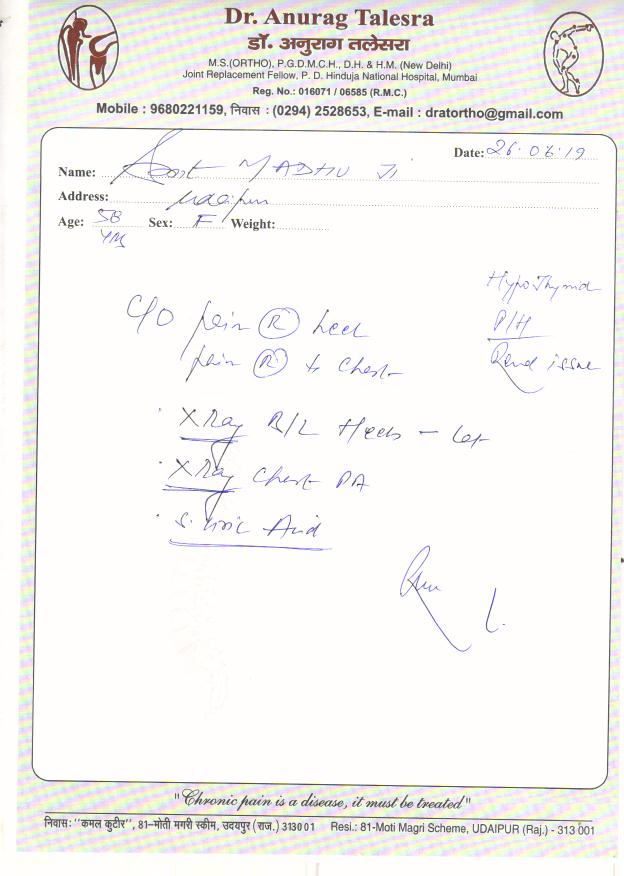 Dr. Anurag Talesra
डॉ. अनुराग तलेसरा
M.S.(ORTHO), P.G.D.M.C.H., D.H. & H.M. (New Delhi)
Joint Replacement Fellow, P. D. Hinduja National Hospital, Mumbai
Reg. No.: 016071 / 06585 (R.M.C.)
Mobile : 9680221159, निवास : (0294) 2528653, E-mail : dratortho@gmail.com
Date: 26.06.19
Name: MADHU Ji
Address: Udaipur
Age: 58 Yrs Sex: F Weight:
HypoThyroid
C/O pain (R) heel
P/H
pain (R) chest
Renal issue
X Ray B/L Heels - Lat
X Ray Chest PA
S. Uric Acid
"Chronic pain is a disease, it must be treated"
निवास: "कमल कुटीर", 81-मोती मगरी स्कीम, उदयपुर (राज.) 313001 Resi.: 81-Moti Magri Scheme, UDAIPUR (Raj.) - 313 001